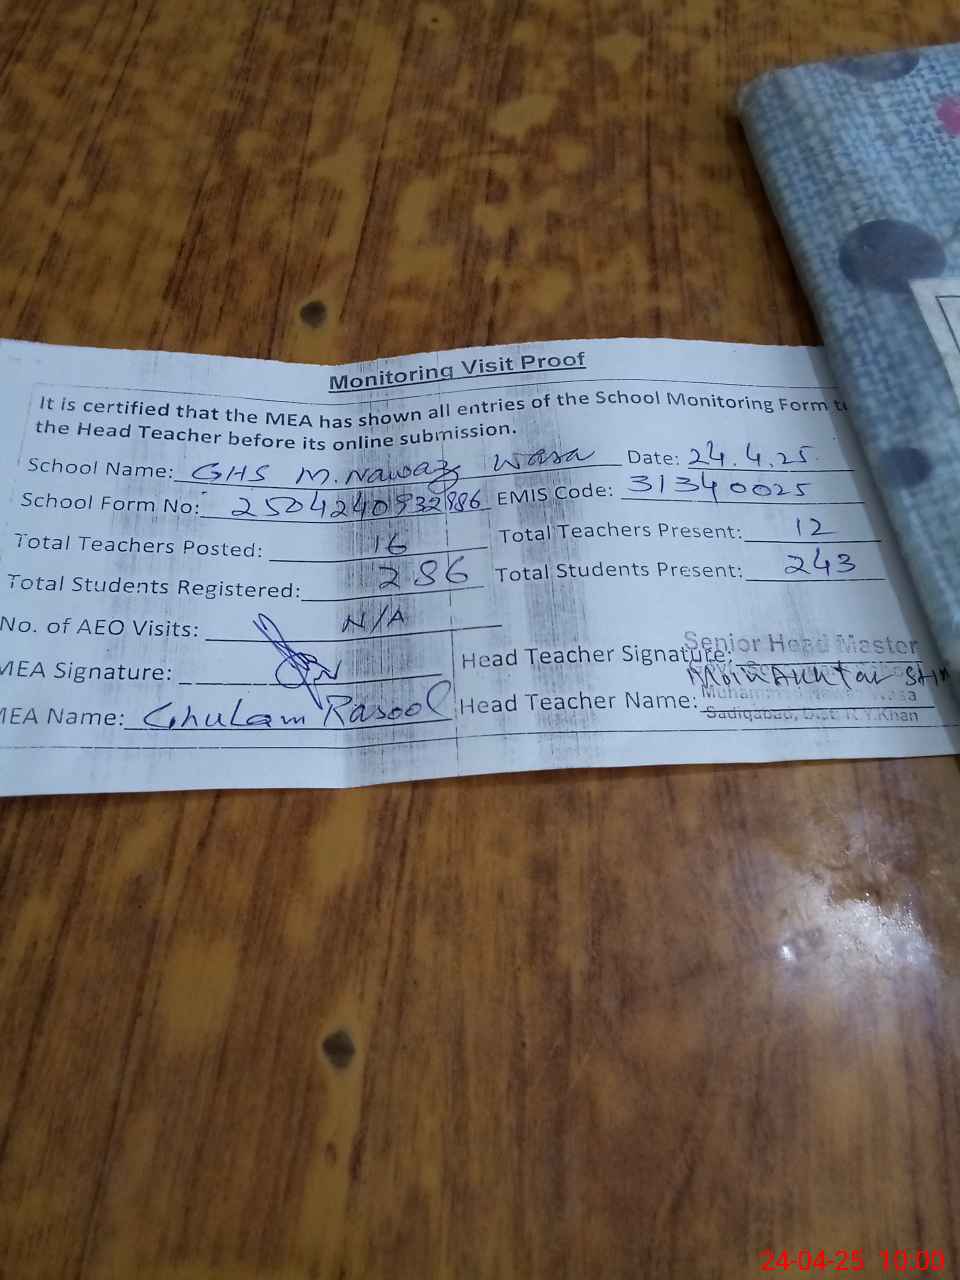 Monitoring Visit Proof
It is certified that the MEA has shown all entries of the School Monitoring Form to
the Head Teacher before its online submission.
School Name: GHS M. Nawaz Wasa Date: 24.4.25
School Form No: 2504240932886 EMIS Code: 31340025
Total Teachers Posted: 16 Total Teachers Present: 12
Total Students Registered: 286 Total Students Present: 243
No. of AEO Visits: N/A
MEA Signature: Head Teacher Signature: Senior Head Master
MEA Name: Ghulam Rasool Head Teacher Name:
Sadiqabad, Dist: R.Y.Khan
24-04-25 10:00